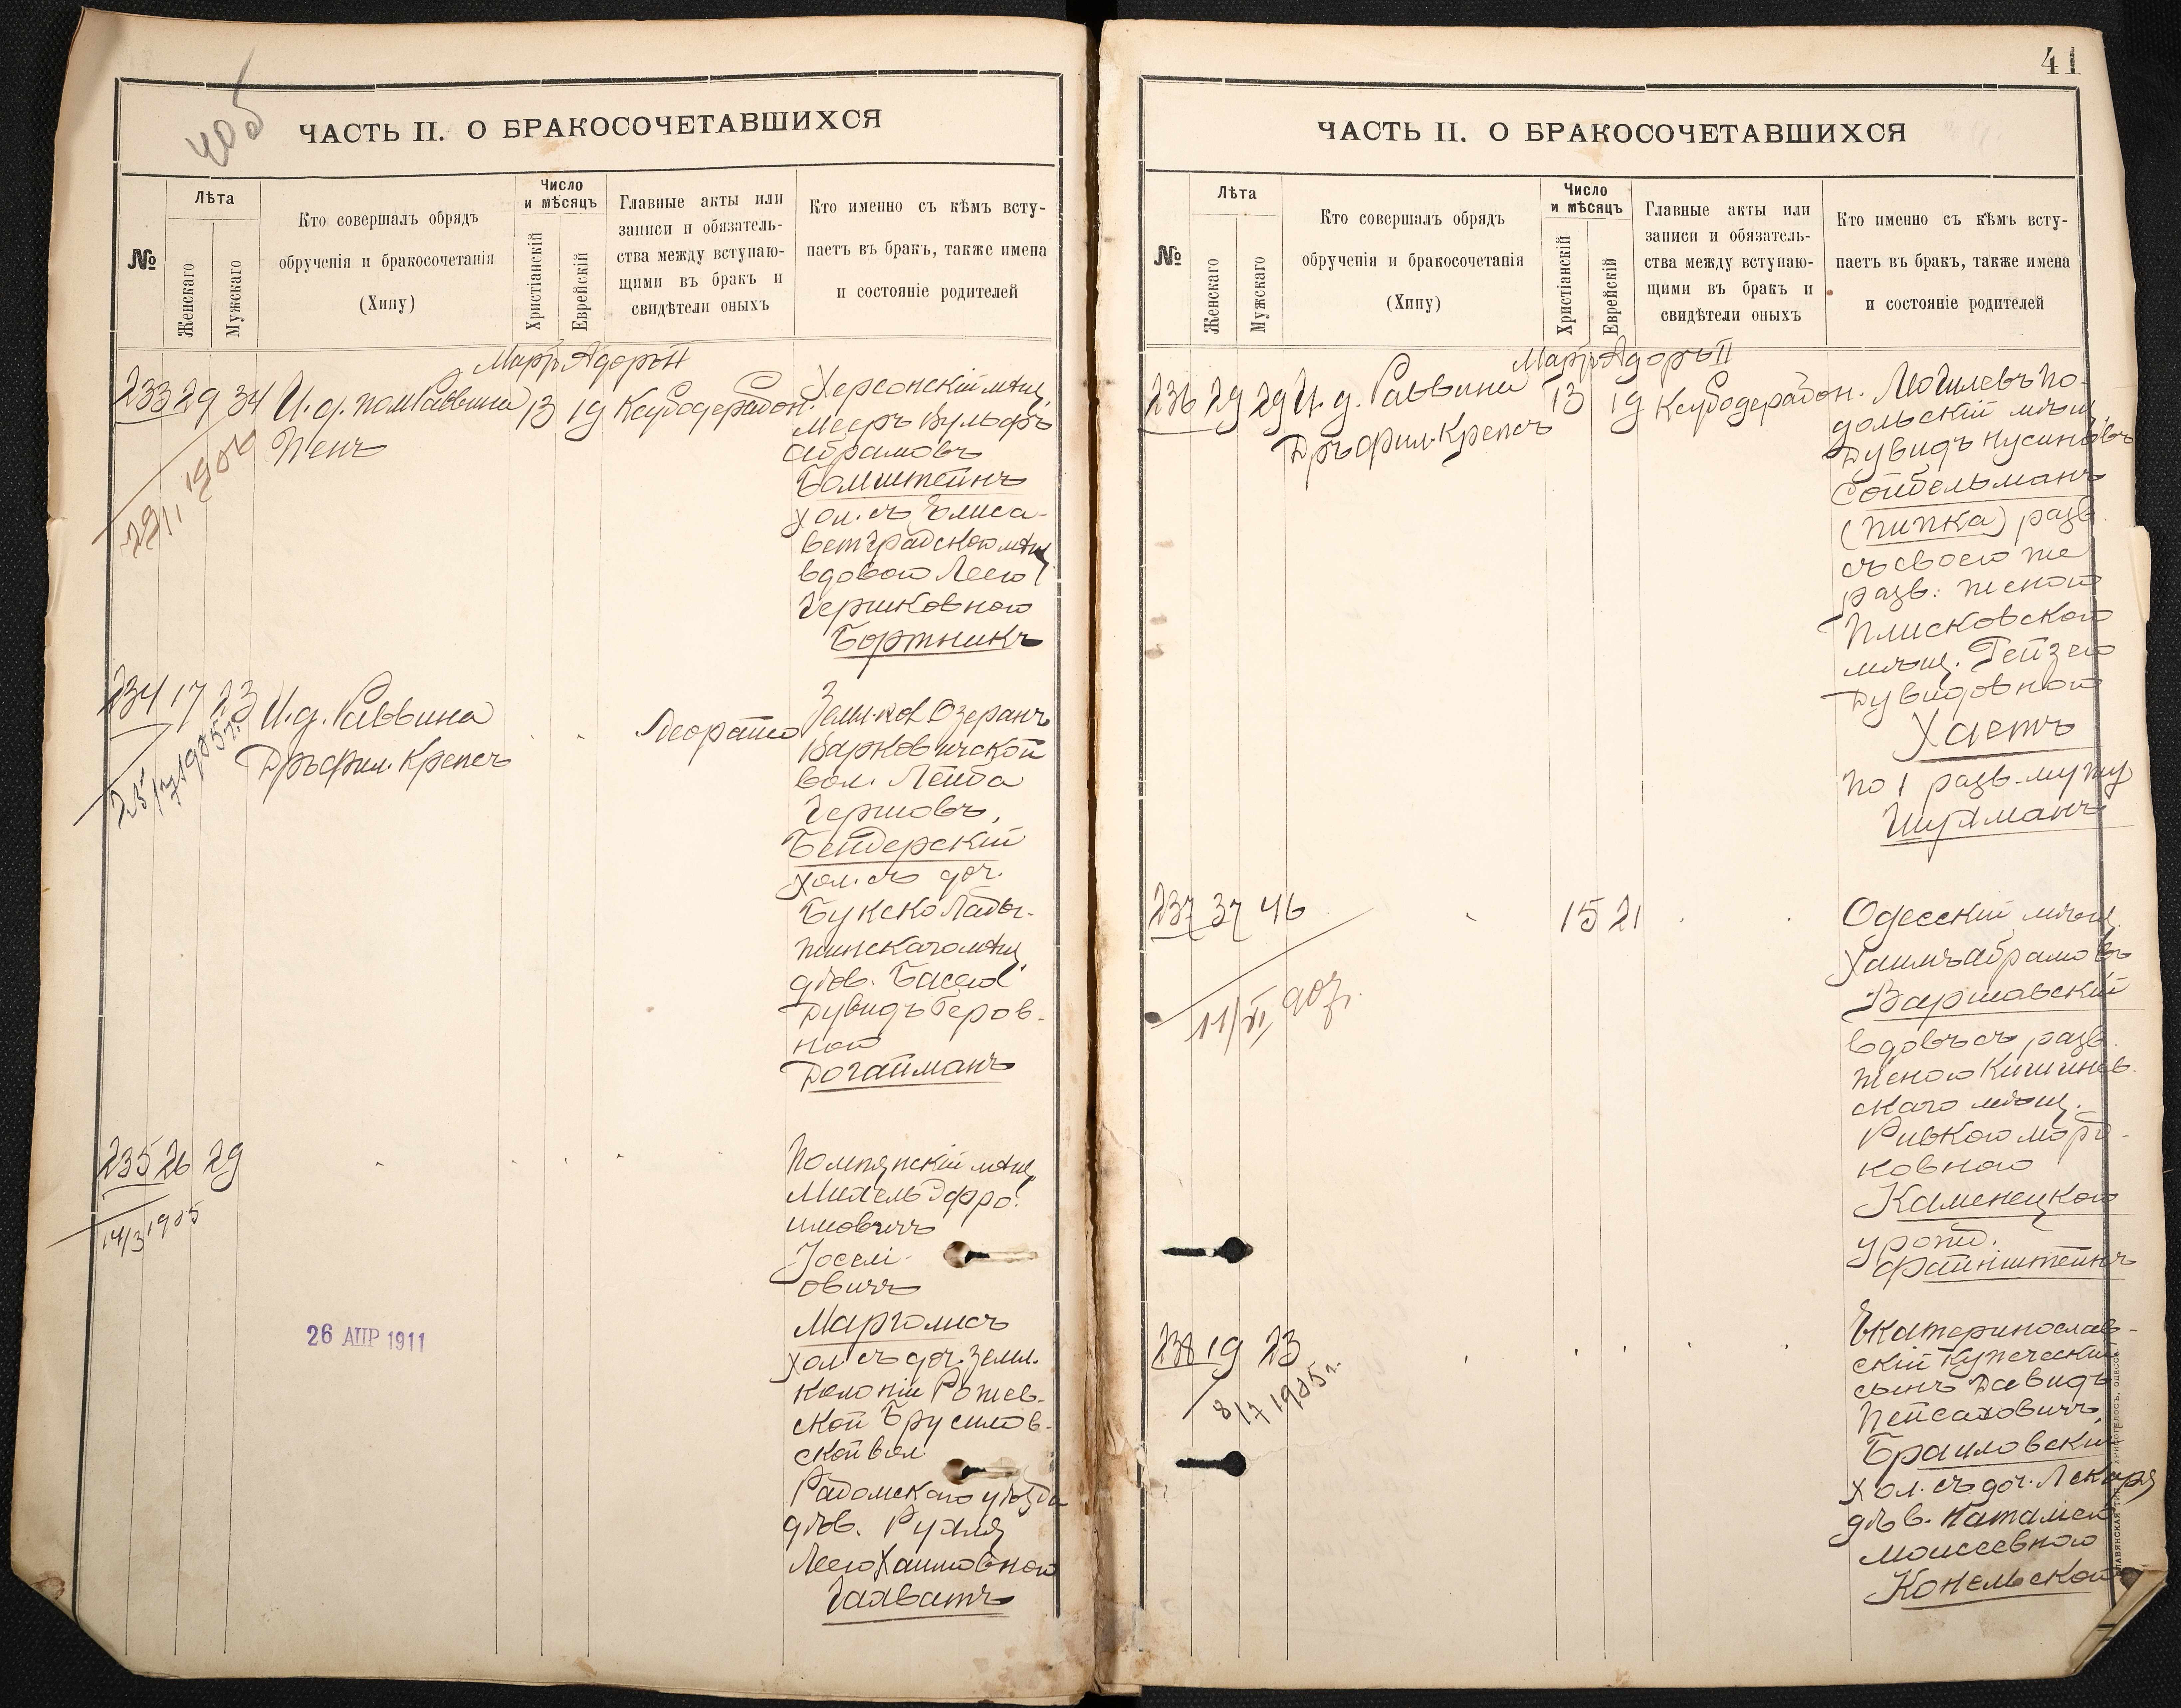 40б
ЧАСТЬ II. О БРАКОСОЧЕТАВШИХСЯ
№
Лѣта
Женскаго
Мужскаго
Кто совершалъ обрядъ
обрученія и бракосочетанія
(Хипу)
Число
и мѣсяцъ
Христіанскій
Еврейскій
Главные акты или
записи и обязатель-
ства между вступаю-
щими въ бракъ и
свидѣтели оныхъ
Кто именно съ кѣмъ всту-
паетъ въ бракъ, также имена
и состояніе родителей
Мартъ Адоръ II
233 29 34 И. д. пом Раввина 13 19
Пенъ
Херсонскій мѣщ.
Мееръ Вульфъ
Абрамовъ
Бомштейнъ
хол. съ Елиса-
ветградской мѣщ
вдовою Леею
Гершковною
Бортникъ
234 17 23 И. д. Раввина
Дръ фил. Крепсъ
25/7 1905 г.
Озеранъ
Варковичской
вол. Лейба
Гершовъ,
Бендерскій
хол. съ доч.
жинскаго мѣщ.
дѣв. Басею
Дувидъ Беров-
ной
Догайманъ
235 26 29
14/3 1905
мѣщ
Михель Эфро-
имовичъ
Іосели-
овичъ
Марголисъ
хол съ доч. земл.
колоніи Рожев-
ской Брусилов-
ской вол.
Радомскаго уѣзда
дѣв. Рухля
Леею Хаимовною
Галватъ
26 АПР 1911
41
ЧАСТЬ II. О БРАКОСОЧЕТАВШИХСЯ
№
Лѣта
Женскаго
Мужскаго
Кто совершалъ обрядъ
обрученія и бракосочетанія
(Хипу)
Число
и мѣсяцъ
Христіанскій
Еврейскій
Главные акты или
записи и обязатель-
ства между вступаю-
щими въ бракъ и
свидѣтели оныхъ
Кто именно съ кѣмъ всту-
паетъ въ бракъ, также имена
и состояніе родителей
Мартъ Адоръ II
236 29 29 И. д. Раввина 13 19
Дръ фил. Крепсъ
Могилевъ По-
дольскій мѣщ.
Дувидъ Нусиновъ
Сойбельманъ
(Пипка) разв.
съ своею же
разв. женой
Плисковской
мѣщ. Гейзею
Дувидовной
Хаетъ
по 1 разв. мужу
Шулманъ
237 37 46 15 21
11/XI 907.
Одесскій мѣщ.
Хаимъ Абрамовъ
Варшавскій
вдовъ съ разв.
женою Кишинев-
скаго мѣщ.
Ривкою Морд-
ковною
Каменецкою
урожд.
Файнштейнъ
238 19 23
8/7 1905 г.
Екатеринослав-
скій купеческій
сынъ Давидъ
Пейсаховичъ,
Браиловскій
хол. съ доч. Лекаря
дѣв. Наталіею
Моисеевною
Конельской